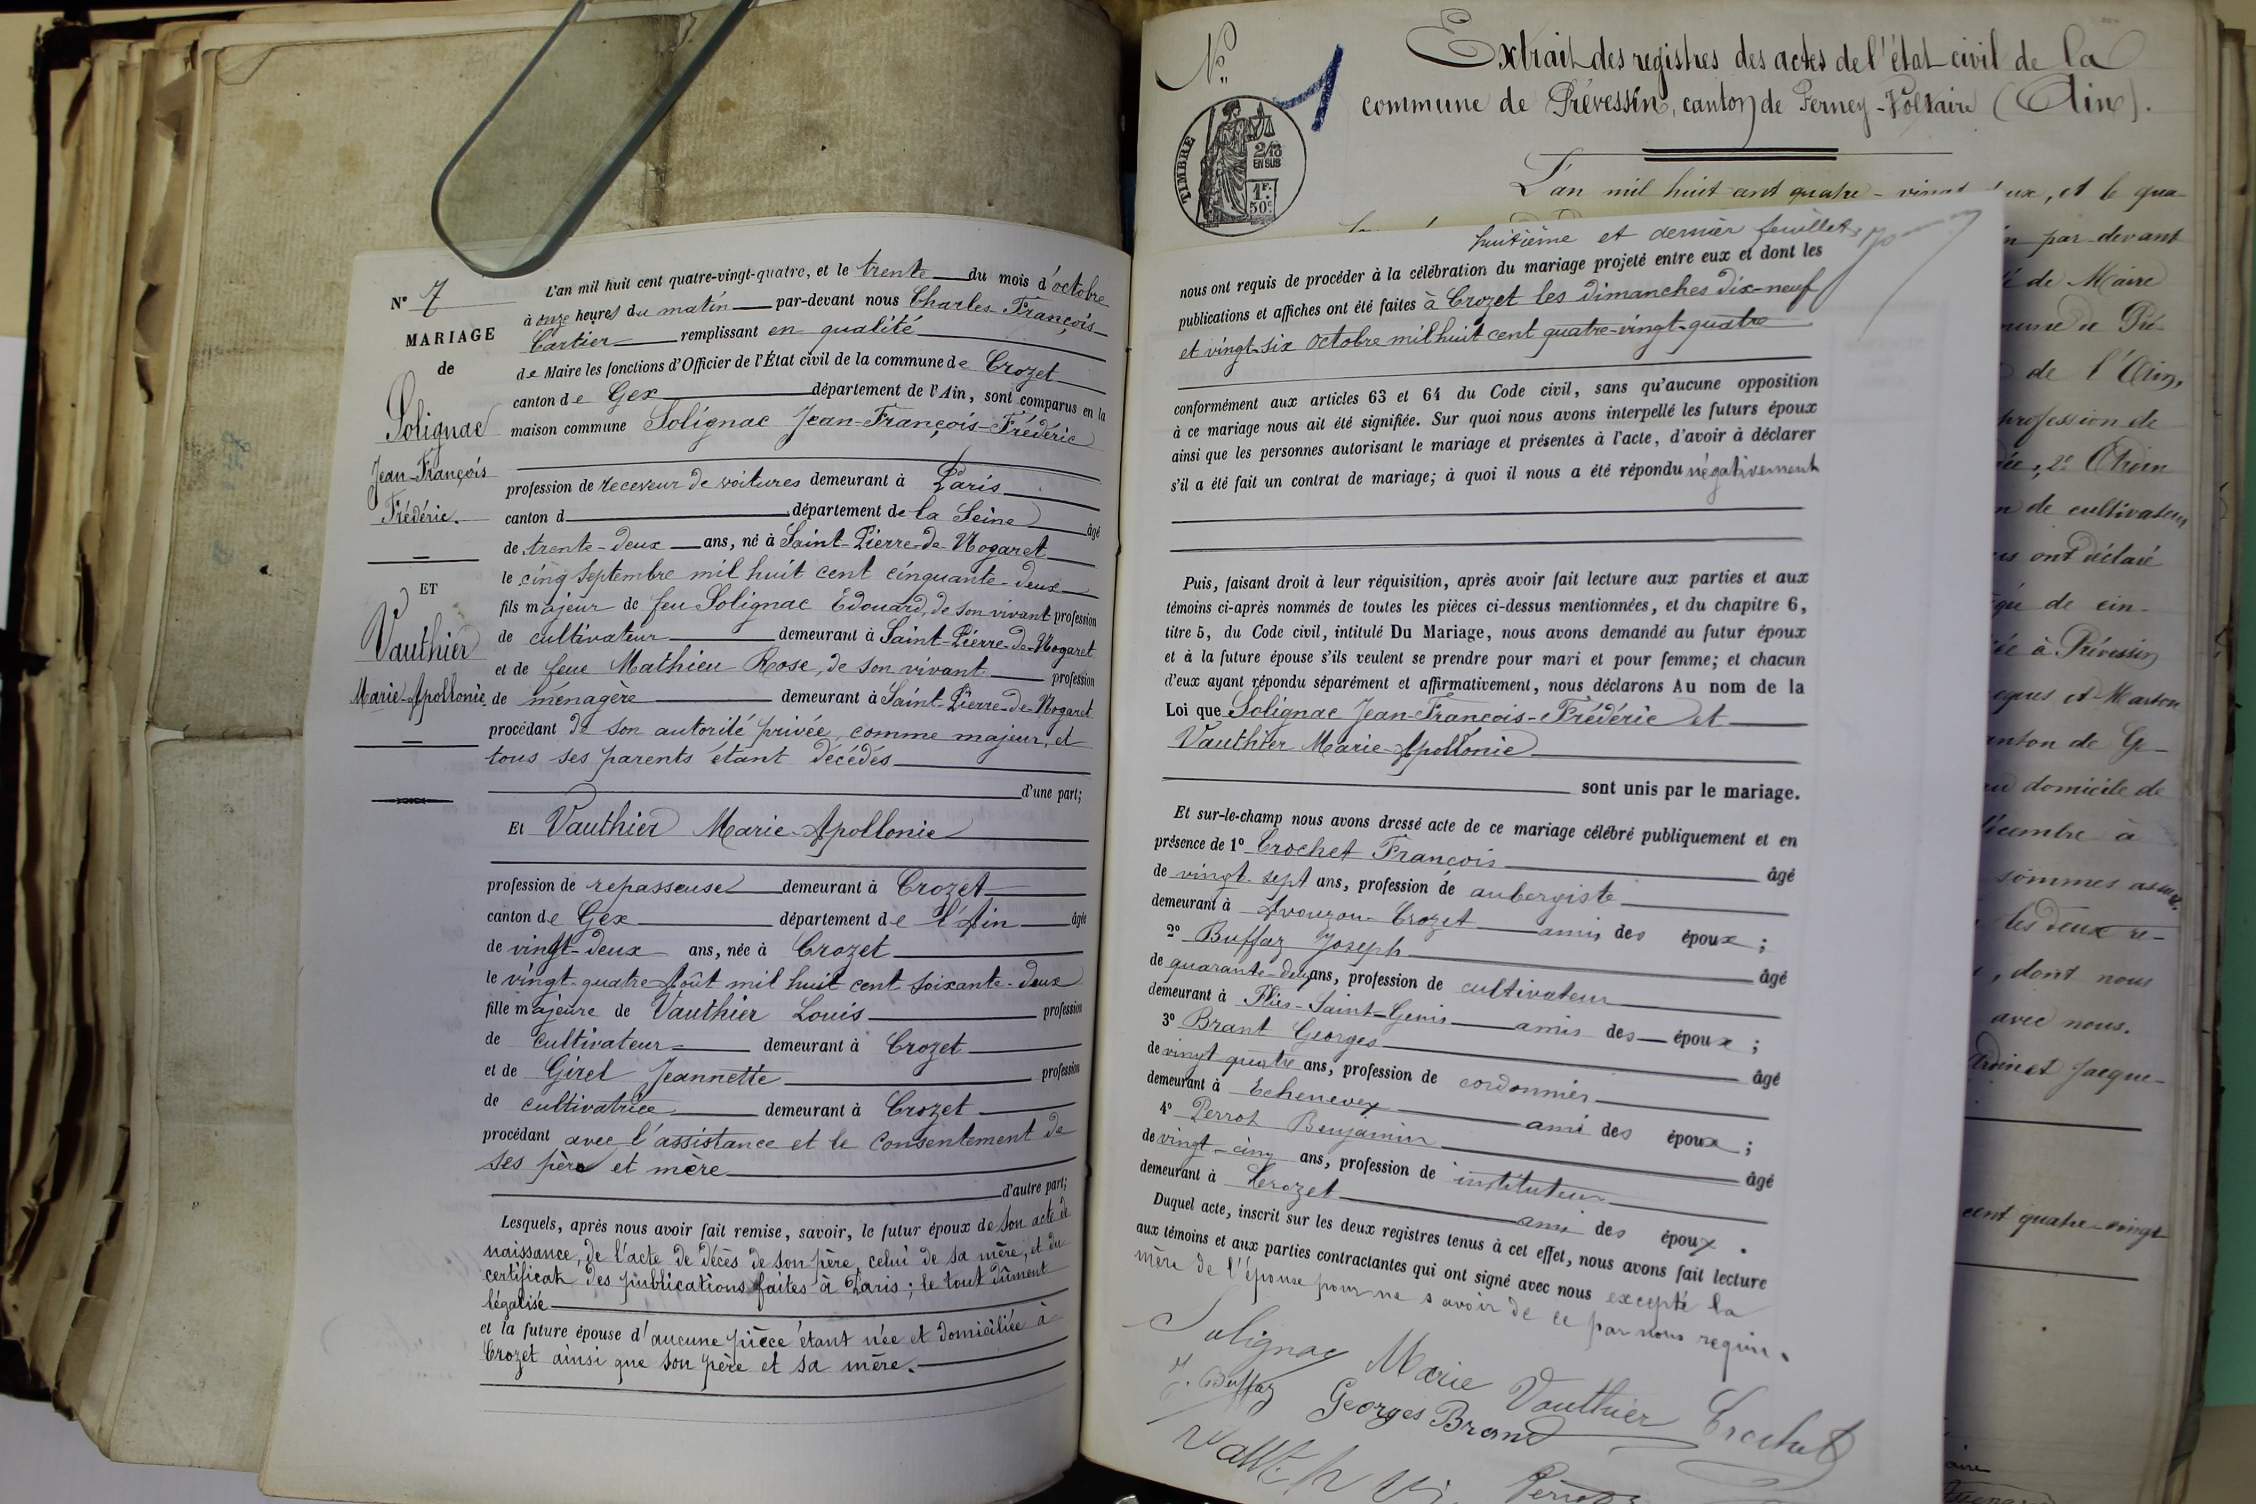 N° 7
MARIAGE
de
Solignac
Jean-François
Frédéric.
ET
Vauthier
Marie-Apollonie
L'an mil huit cent quatre-vingt-quatre, et le trente du mois d'octobre
à onze heures du matin par-devant nous Charles-François
Cartier remplissant en qualité
de Maire les fonctions d'Officier de l'État civil de la commune de Crozet
canton de Gex département de l'Ain, sont comparus en la
maison commune Solignac Jean-François-Frédéric
profession de receveur de voitures demeurant à Paris
canton d département de la Seine âgé
de trente-deux ans, né à Saint-Pierre-de-Nogaret
le cinq Septembre mil huit cent cinquante-deux
fils majeur de feu Solignac Edouard, de son vivant profession
de cultivateur demeurant à Saint-Pierre-de-Nogaret
et de feue Mathieu Rose, de son vivant profession
de ménagère demeurant à Saint-Pierre-de-Nogaret
procédant de son autorité privée, comme majeur, et
tous ses parents étant décédés
d'une part;
Et Vauthier Marie-Apollonie
profession de repasseuse demeurant à Crozet
canton de Gex département de l'Ain âgée
de vingt-deux ans, née à Crozet
le vingt-quatre Août mil huit cent soixante-deux
fille majeure de Vauthier Louis profession
de cultivateur demeurant à Crozet
et de Girel Jeannette profession
de cultivatrice demeurant à Crozet
procédant avec l'assistance et le consentement de
ses père et mère
d'autre part;
Lesquels, après nous avoir fait remise, savoir, le futur époux de son acte de
naissance, de l'acte de décès de son père, celui de sa mère, et du
certificat des publications faites à Paris; le tout dûment
légalisé
et la future épouse d'aucune pièce étant née et domiciliée à
Crozet ainsi que son père et sa mère.
N°
1
TIMBRE
2/10
EN SUS
1F.
50c
Extrait des registres des actes de l'état civil de la
commune de Prévessin, canton de Ferney-Voltaire (Ain).
L'an mil huit cent quatre-vingt ux, et le qua-
huitième et dernier feuillet
nous ont requis de procéder à la célébration du mariage projeté entre eux et dont les
publications et affiches ont été faites à Crozet les dimanches dix-neuf
et vingt-six octobre mil huit cent quatre-vingt-quatre
conformément aux articles 63 et 64 du Code civil, sans qu'aucune opposition
à ce mariage nous ait été signifiée. Sur quoi nous avons interpellé les futurs époux
ainsi que les personnes autorisant le mariage et présentes à l'acte, d'avoir à déclarer
s'il a été fait un contrat de mariage; à quoi il nous a été répondu négativement
Puis, faisant droit à leur réquisition, après avoir fait lecture aux parties et aux
témoins ci-après nommés de toutes les pièces ci-dessus mentionnées, et du chapitre 6,
titre 5, du Code civil, intitulé Du Mariage, nous avons demandé au futur époux
et à la future épouse s'ils veulent se prendre pour mari et pour femme; et chacun
d'eux ayant répondu séparément et affirmativement, nous déclarons Au nom de la
Loi que Solignac Jean-François-Frédéric et
Vauthier Marie-Apollonie
sont unis par le mariage.
Et sur-le-champ nous avons dressé acte de ce mariage célébré publiquement et en
présence de 1° Crochet François âgé
de vingt-sept ans, profession de aubergiste
demeurant à Avouzon-Crozet ami des époux;
2° Buffaz Joseph âgé
de quarante-deux ans, profession de cultivateur
demeurant à Flies-Saint-Genis amis des époux;
3° Brant Georges âgé
de vingt quatre ans, profession de cordonnier
demeurant à Echenevex ami des époux;
4° Perrot Benjamin âgé
de vingt-cinq ans, profession de instituteur
demeurant à Crozet ami des époux.
Duquel acte, inscrit sur les deux registres tenus à cet effet, nous avons fait lecture
aux témoins et aux parties contractantes qui ont signé avec nous excepté la
mère de l'épouse pour ne savoir de ce par nous requise.
Solignac Marie Vauthier Crochet
J. Buffaz Georges Brant
Perrot
n par-devant
de Maire
de l'Ain,
profession de
n de cultivateur
us ont déclaré
de cin-
à Prévessin
canton de Ge-
au domicile de
décembre à
sommes assuré
les deux re-
, dont nous
avec nous.
Jacque-
cent quatre-vingt